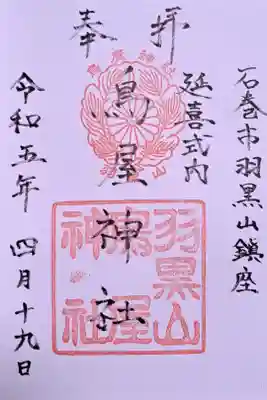 石巻市羽黒山鎮座
延喜式内
奉拝
鳥屋神社
令和五年 四月十九日
羽黒山
鳥屋
神社